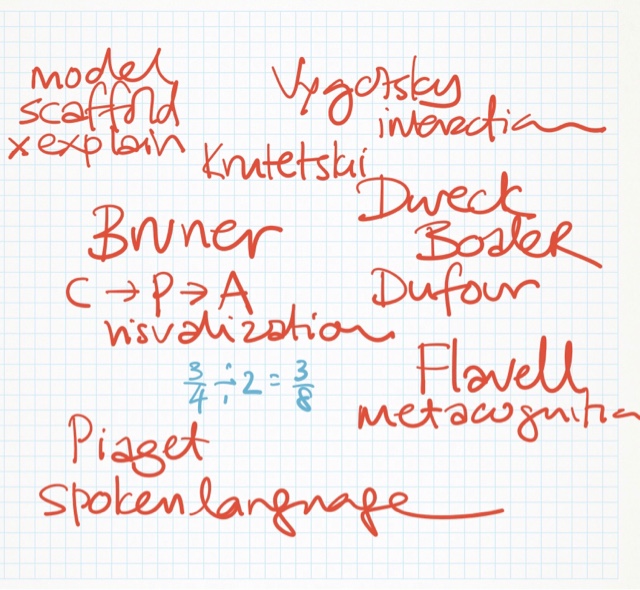 model
scaffold
x explain
Vygotsky
interaction
Krutetski
Dweck
Boaler
Dufour
Bruner
C → P → A
visualization
3/4 ÷ 2 = 3/8
Flavell
metacognition
Piaget
spoken language